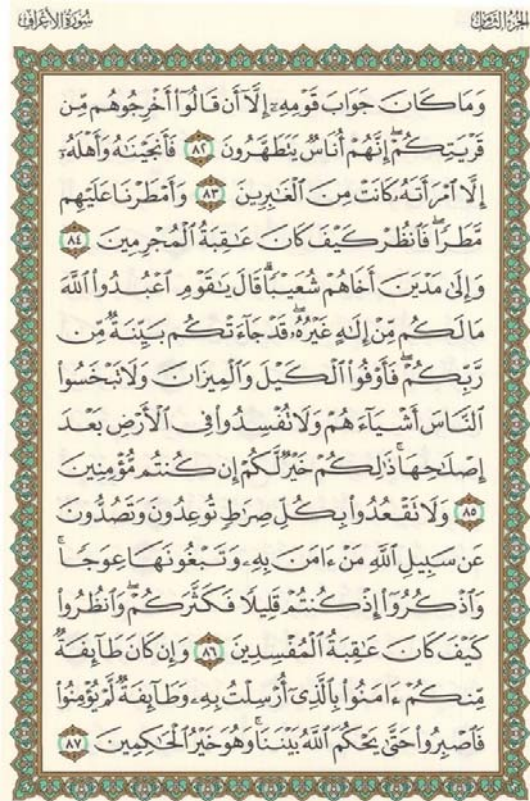 الجزء الثامن
سورة الأعراف
وَمَا كَانَ جَوَابَ قَوْمِهِۦٓ إِلَّآ أَن قَالُوٓاْ أَخْرِجُوهُم مِّن
قَرْيَتِكُمْۖ إِنَّهُمْ أُنَاسٌ يَتَطَهَّرُونَ ٨٢ فَأَنجَيْنَٰهُ وَأَهْلَهُۥٓ
إِلَّا ٱمْرَأَتَهُۥ كَانَتْ مِنَ ٱلْغَٰبِرِينَ ٨٣ وَأَمْطَرْنَا عَلَيْهِم
مَّطَرًاۖ فَٱنظُرْ كَيْفَ كَانَ عَٰقِبَةُ ٱلْمُجْرِمِينَ ٨٤
وَإِلَىٰ مَدْيَنَ أَخَاهُمْ شُعَيْبًاۗ قَالَ يَٰقَوْمِ ٱعْبُدُواْ ٱللَّهَ
مَا لَكُم مِّنْ إِلَٰهٍ غَيْرُهُۥۖ قَدْ جَآءَتْكُم بَيِّنَةٌ مِّن
رَّبِّكُمْۖ فَأَوْفُواْ ٱلْكَيْلَ وَٱلْمِيزَانَ وَلَا تَبْخَسُواْ
ٱلنَّاسَ أَشْيَآءَهُمْ وَلَا تُفْسِدُواْ فِى ٱلْأَرْضِ بَعْدَ
إِصْلَٰحِهَاۚ ذَٰلِكُمْ خَيْرٌ لَّكُمْ إِن كُنتُم مُّؤْمِنِينَ
٨٥ وَلَا تَقْعُدُواْ بِكُلِّ صِرَٰطٍ تُوعِدُونَ وَتَصُدُّونَ
عَن سَبِيلِ ٱللَّهِ مَنْ ءَامَنَ بِهِۦ وَتَبْغُونَهَا عِوَجًاۚ
وَٱذْكُرُوٓاْ إِذْ كُنتُمْ قَلِيلًا فَكَثَّرَكُمْۖ وَٱنظُرُواْ
كَيْفَ كَانَ عَٰقِبَةُ ٱلْمُفْسِدِينَ ٨٦ وَإِن كَانَ طَآئِفَةٌ
مِّنكُمْ ءَامَنُواْ بِٱلَّذِىٓ أُرْسِلْتُ بِهِۦ وَطَآئِفَةٌ لَّمْ يُؤْمِنُواْ
فَٱصْبِرُواْ حَتَّىٰ يَحْكُمَ ٱللَّهُ بَيْنَنَاۚ وَهُوَ خَيْرُ ٱلْحَٰكِمِينَ ٨٧